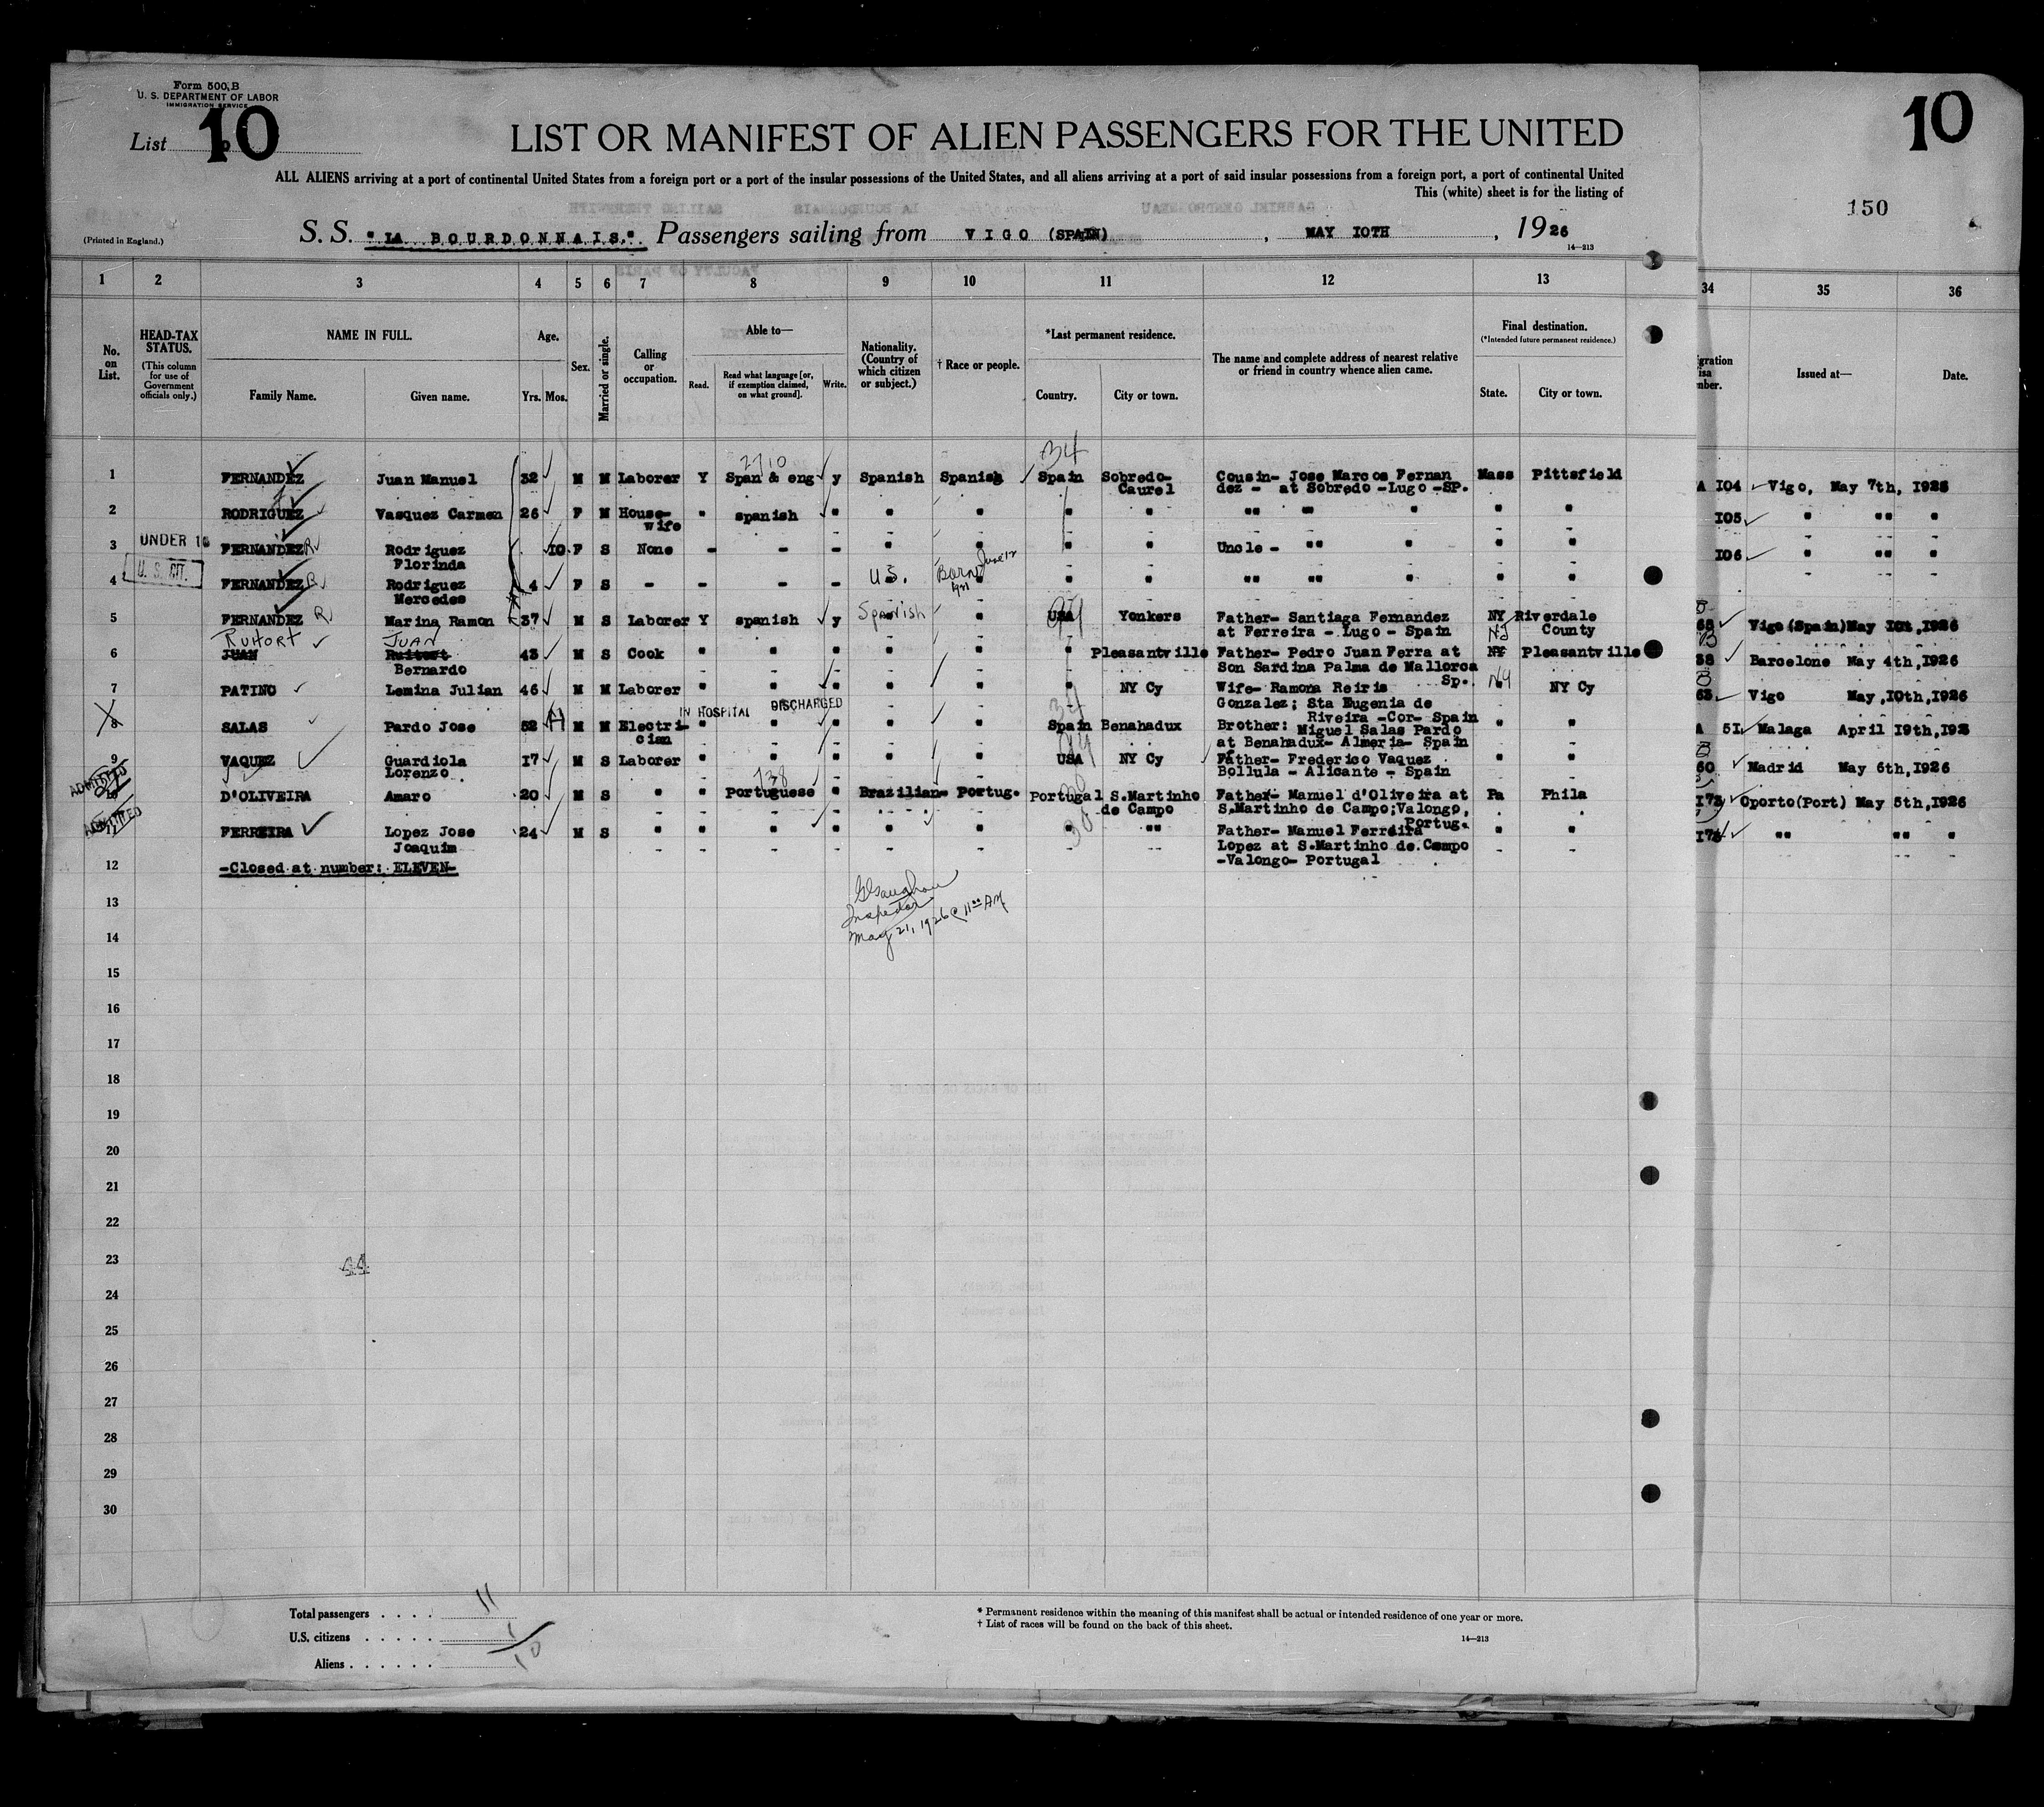 Form 500 B
U. S. DEPARTMENT OF LABOR
IMMIGRATION SERVICE
List 10
10
LIST OR MANIFEST OF ALIEN PASSENGERS FOR THE UNITED
ALL ALIENS arriving at a port of continental United States from a foreign port or a port of the insular possessions of the United States, and all aliens arriving at a port of said insular possessions from a foreign port, a port of continental United
This (white) sheet is for the listing of
150
(Printed in England.)
S. S. "LA BOURDONNAIS." Passengers sailing from VIGO (SPAIN), MAY IOTH, 1926
14—213
1 2 3 4 5 6 7 8 9 10 11 12 13 34 35 36
No. on List.
HEAD-TAX STATUS.
(This column for use of Government officials only.)
NAME IN FULL.
Family Name. Given name.
Age.
Yrs. Mos.
Sex.
Married or single.
Calling or occupation.
Able to—
Read. Read what language [or, if exemption claimed, on what ground]. Write.
Nationality. (Country of which citizen or subject.)
† Race or people.
*Last permanent residence.
Country. City or town.
The name and complete address of nearest relative or friend in country whence alien came.
Final destination.
(*Intended future permanent residence.)
State. City or town.
Issued at—
Date.
2710 34
1 FERNANDEZ Juan Manuel 32 M M Laborer Y Span & eng y Spanish Spanish Spain Sobredo- Caurel Cousin- Jose Marcos Fernan dez - at Sobredo -Lugo -SP. Mass Pittsfield A I04 Vigo, May 7th, I926
2 RODRIGUEZ Vasquez Carmen 26 F M House- wife " spanish " " " " " "" " " " " I05 " "" "
3 UNDER 16 FERNANDEZ R Rodriguez Florinda IO F S None - - - " " " " Uncle - "" " " " I06 " "" "
4 U. S. CIT. FERNANDEZ R Rodriguez Mercedes 4 F S - - - - U.S. Born " " "" "" " " "
5 FERNANDEZ R Marina Ramon 37 M S Laborer Y spanish y Spanish " USA Yonkers Father- Santiaga Fernandez at Ferreira - Lugo - Spain NY Riverdale County Vigo(Spain)May IOt,I926
RUHORT JUAN
6 JUAN Ruitort Bernardo 43 M S Cook " " " " " " Pleasantville Father- Pedro Juan Ferra at Son Sardina Palma de Mallorca Sp. NJ NY Pleasantville Barcelone May 4th,I926
7 PATINO Lemina Julian 46 M M Laborer " " " " " " NY Cy Wife- Ramona Reiris Gonzalez; Sta Eugenia de Riveira -Cor- Spain NY NY Cy Vigo May,IOth,I926
IN HOSPITAL DISCHARGED
8 SALAS Pardo Jose 52 M M Electri- cian " " " " " Spain Benahadux Brother: Miguel Salas Pardo at Benahadux- Almeria- Spain " " A 5I Malaga April I9th,I92
9 VAQUEZ Guardiola Lorenzo I7 M S Laborer " " " " " USA NY Cy Father- Frederico Vaquez Bollula - Alicante - Spain " " Madrid May 6th,I926
ADMITTED 738
10 D'OLIVEIRA Amaro 20 M S " " Portuguese " Brazilian- Portug. Portugal S.Martinho de Campo Father- Manuel d'Oliveira at S.Martinho de Campo;Valongo, Portug. Pa Phila Oporto(Port) May 5th,I926
ADMITTED
11 FERREIRA Lopez Jose Joaquim 24 M S " " " " " " " "" Father- Manuel Ferreira Lopez at S.Martinho de Campo -Valongo- Portugal " " "" "" "
12 -Closed at number: ELEVEN-
Inspector
May 21, 1926 @ 11 00 AM
13
14
15
16
17
18
19
20
21
22
23
44
24
25
26
27
28
29
30
Total passengers . . . . 11
U.S. citizens . . . . . 1
Aliens . . . . . . 10
* Permanent residence within the meaning of this manifest shall be actual or intended residence of one year or more.
† List of races will be found on the back of this sheet.
14—213